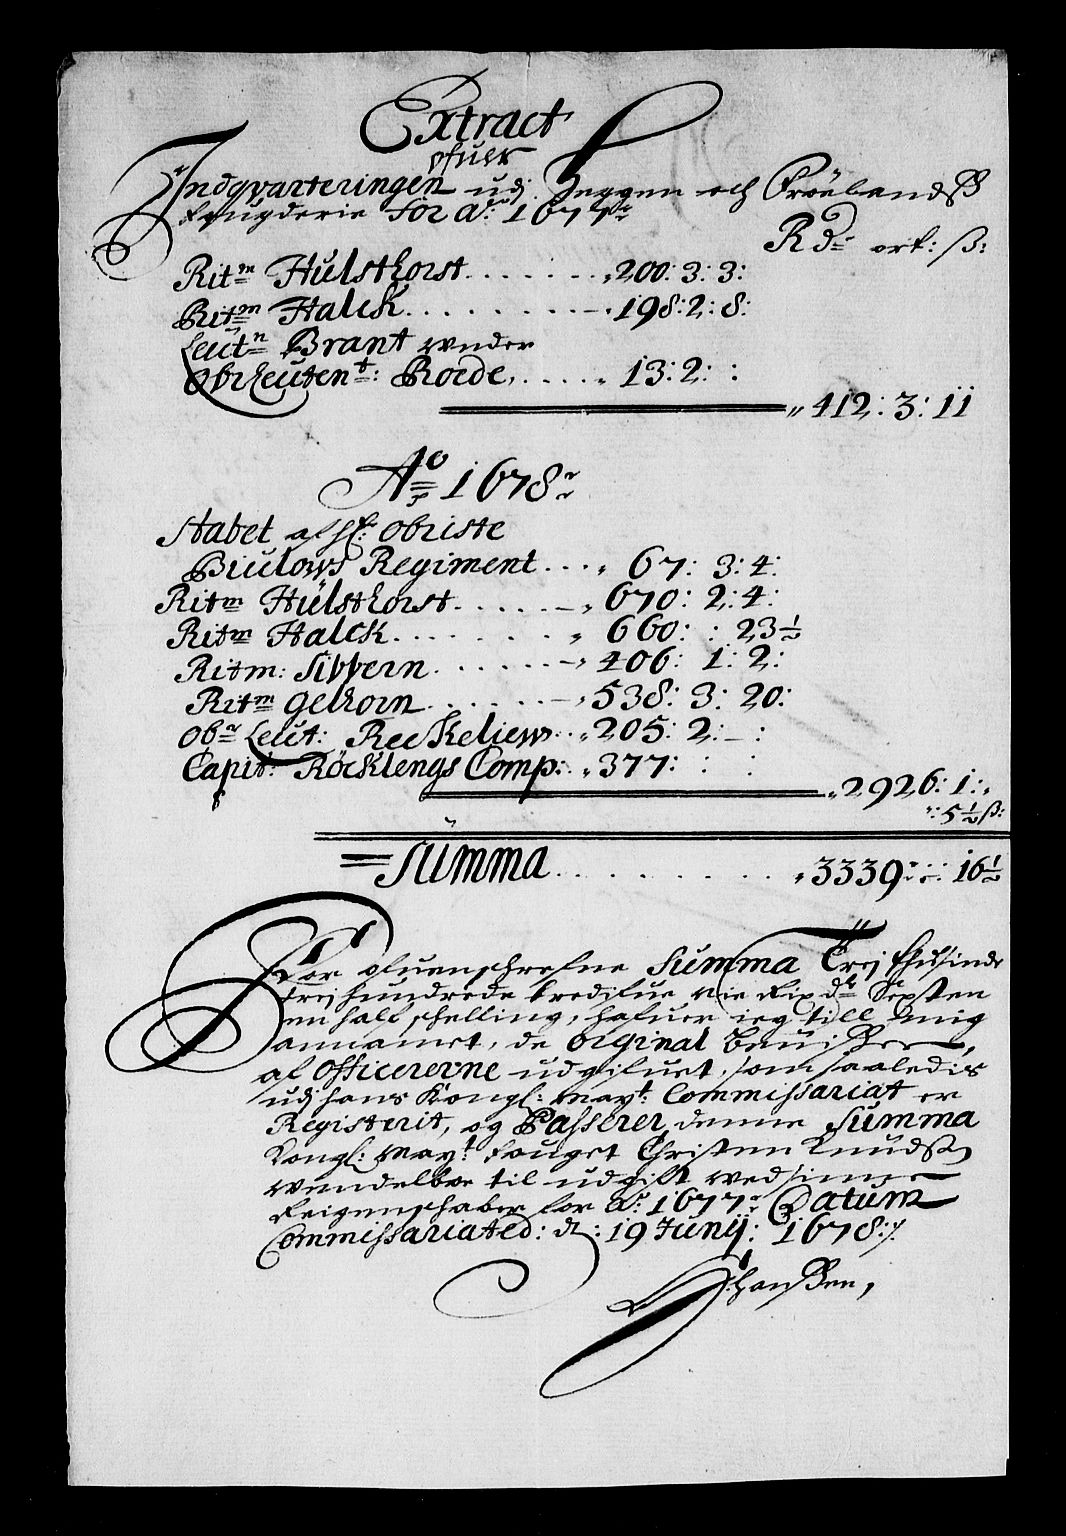 Extract
ofuer
Indqvarteringen udj Heggen och Fröelandß
Fougderie for Ao: 1677
Rdr ort: ß:
Ritm Hülsthorst . . . . . . . 200: 3: 3:
Ritm Halck . . . . . . . . . 198: 2: 8:
Leutn Brant under
Obrleutent: Roede, . . . . . 13: 2: :
412: 3: 11
Ao 1678
Stabet af Hr: Obriste
Biulows Regiment . . . 67: 3: 4:
Ritm Hülsthorst . . . . . . 670: 2: 4:
Ritm Halck . . . . . . . . 660: : 23½
Ritm: Sivvern . . . . . . . 406: 1: 2:
Ritm Gelhorn . . . . . . . 538: 3: 20:
Obr Leut: Reckeliew . . 205: 2: – :
Capit: Röcklengs Comp: . . 377: : :
2926: 1:
: 5½ ß:
Summa . . . . . . . . . 3339: : 16½
For ofuenschrefne Summa Trej thusinde
trej hundrede tredifue nie Rix dr Sexsten
en half schelling, hafuer ieg till mig
annamet, de orginal beuißer,
af Officererne udgifuet, som saaledis
udj hans Kongl: Mayt: Commissariat er
Registerit, og Passerer denne Summa
Kongl: Mayt Fouget Christen Knudsen
wendelboe til udgift wed sinne
Reigenschaber for Ao 1677 Datum
Commissariated: d: 19 Junij: 1678:
Hansßen,